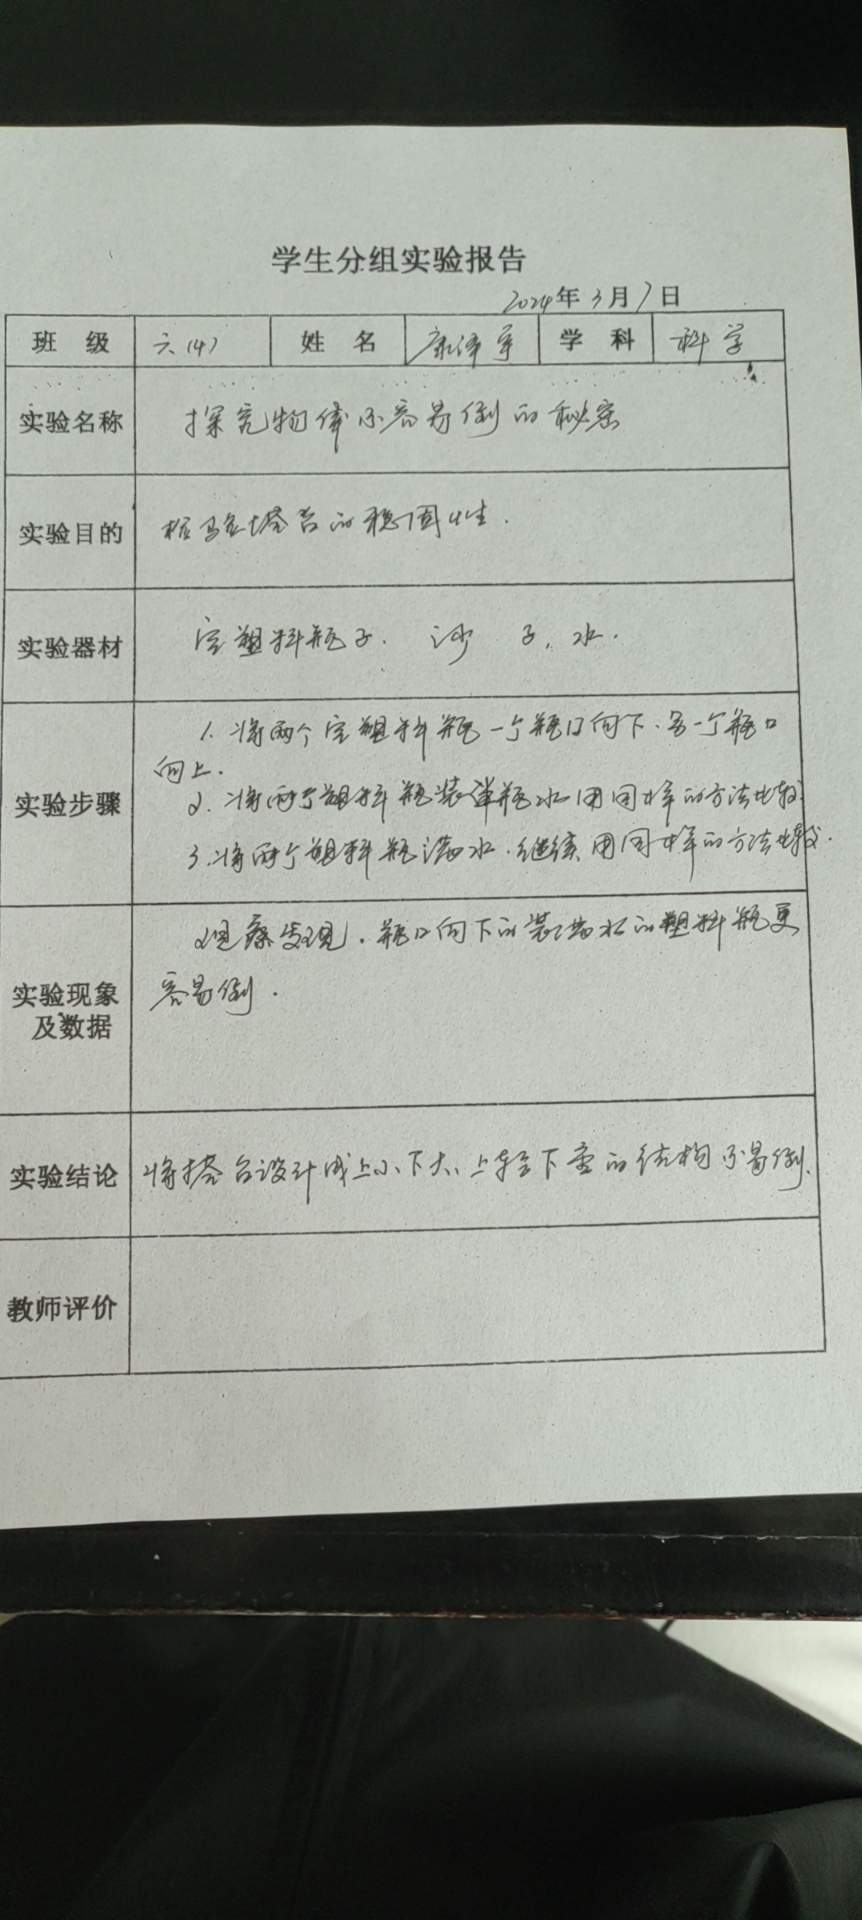 学生分组实验报告
2024年3月7日
班 级 六(4) 姓 名 学 科 科学
实验名称 探究物体不容易倒的秘密
实验目的 检验塔台的稳固性.
实验器材 空塑料瓶子. 沙 子, 水.
1. 将两个空塑料瓶一个瓶口向下.另一个瓶口
向上.
实验步骤
2. 将两个塑料瓶装半瓶水用同样的方法比较
3. 将两个塑料瓶满水.继续用同样的方法比较.
观察发现.瓶口向下的装满水的塑料瓶更
容易倒.
实验现象
及数据
实验结论 将塔台设计成上小、下大、上轻下重的结构不易倒.
教师评价